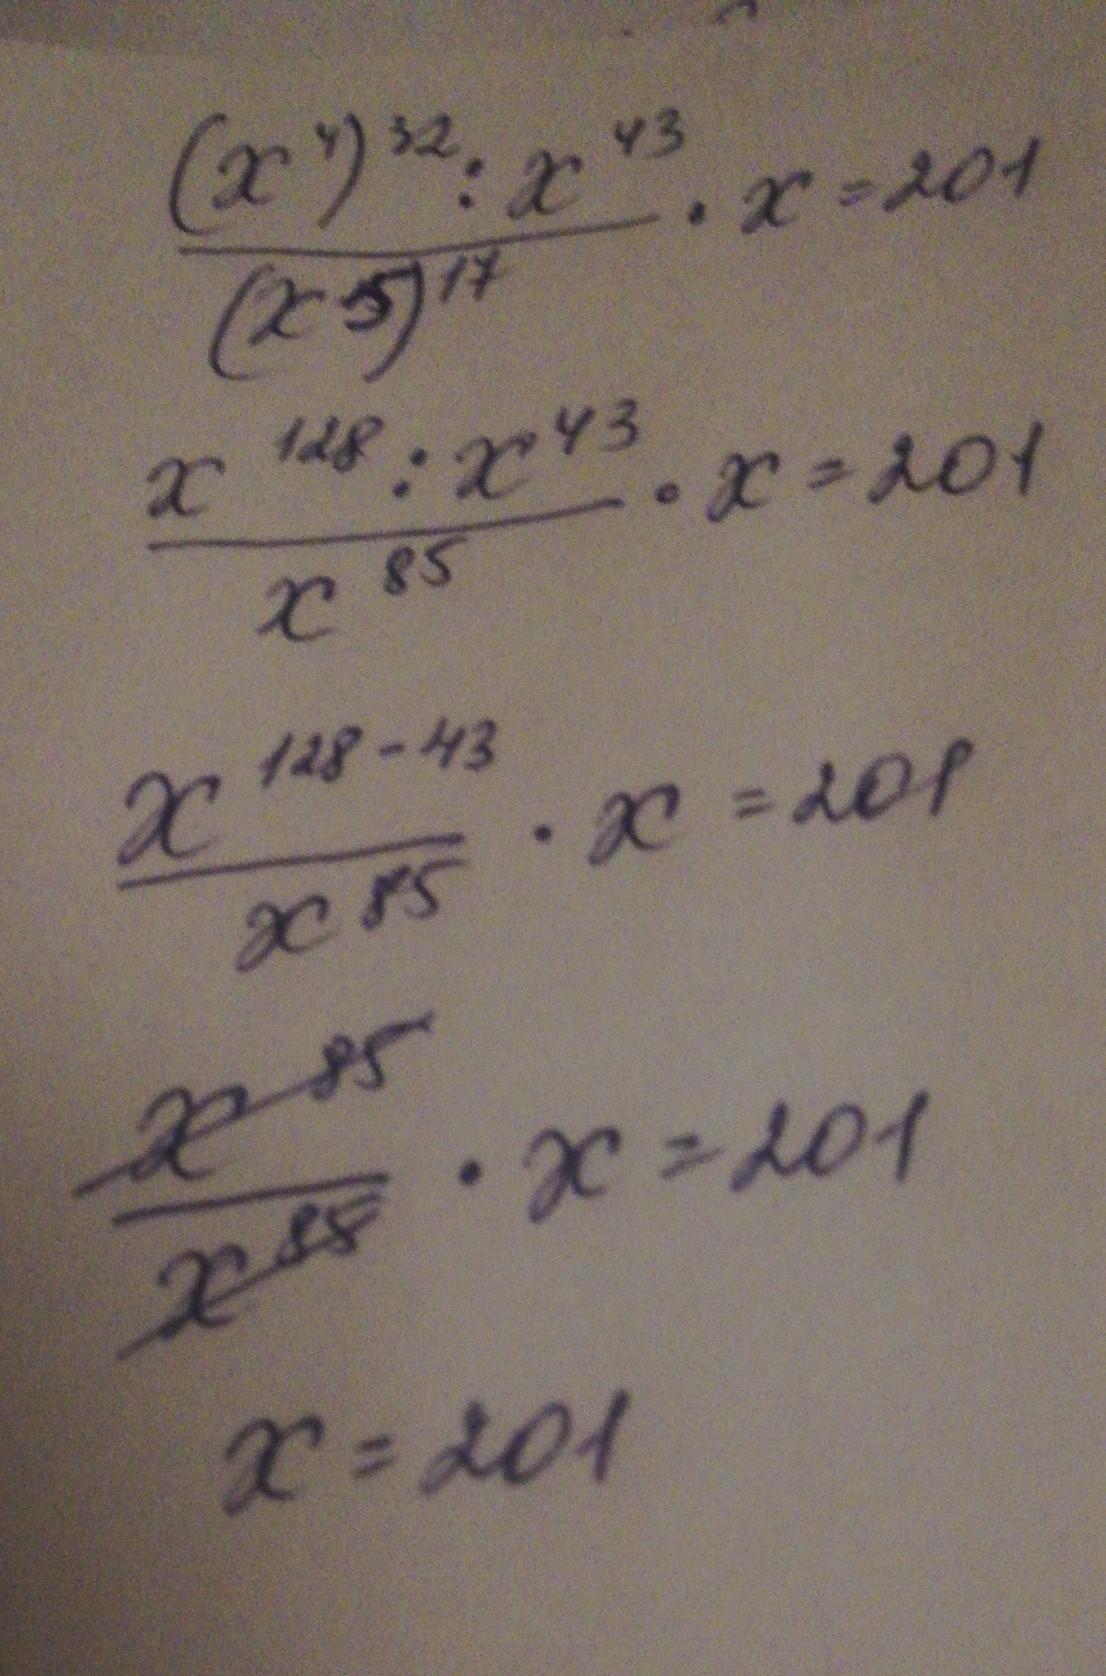 (x⁴)³² : x⁴³ / (x⁵)¹⁷ · x = 201
x¹²⁸ : x⁴³ / x⁸⁵ · x = 201
x¹²⁸⁻⁴³ / x⁸⁵ · x = 201
x⁸⁵ / x⁸⁵ · x = 201
x = 201